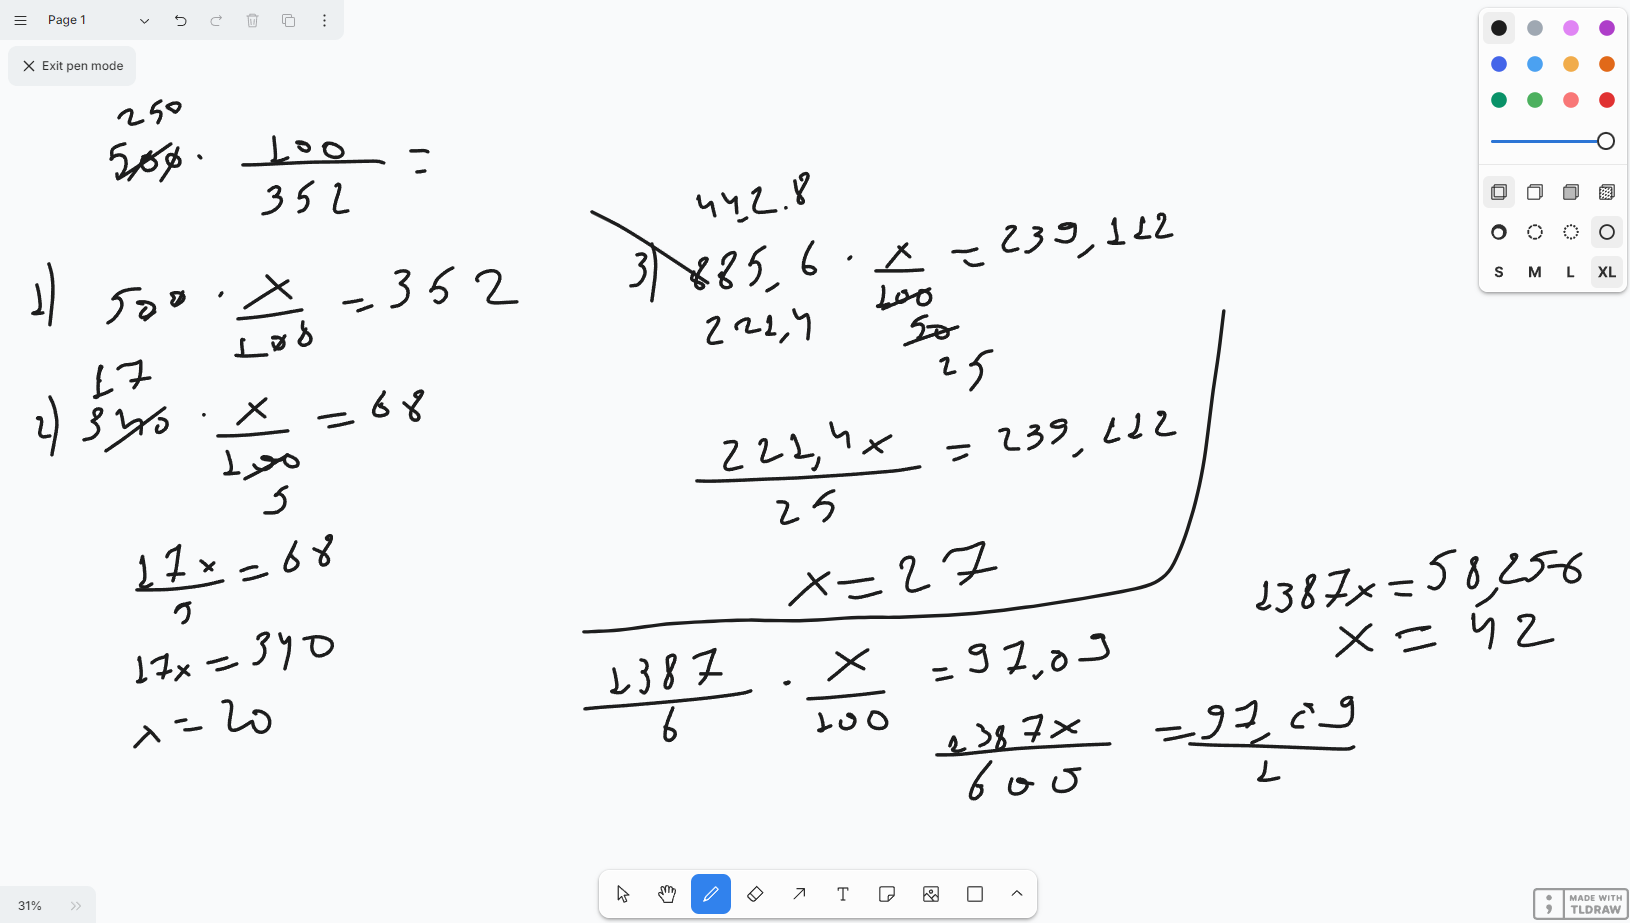 Page 1
Exit pen mode
250
500 · 100/352 =
1) 500 · x/100 = 352
17
2) 340 · x/100 = 68
5
17x/5 = 68
17x = 340
x = 20
442.8
3) 885,6 · x/100 = 239,112
221,4
50
25
221,4x/25 = 239,112
x = 27
1387/6 · x/100 = 97,09
1387x/600 = 97,09/1
1387x = 58,256
x = 42
S M L XL
31%
MADE WITH
TLDRAW